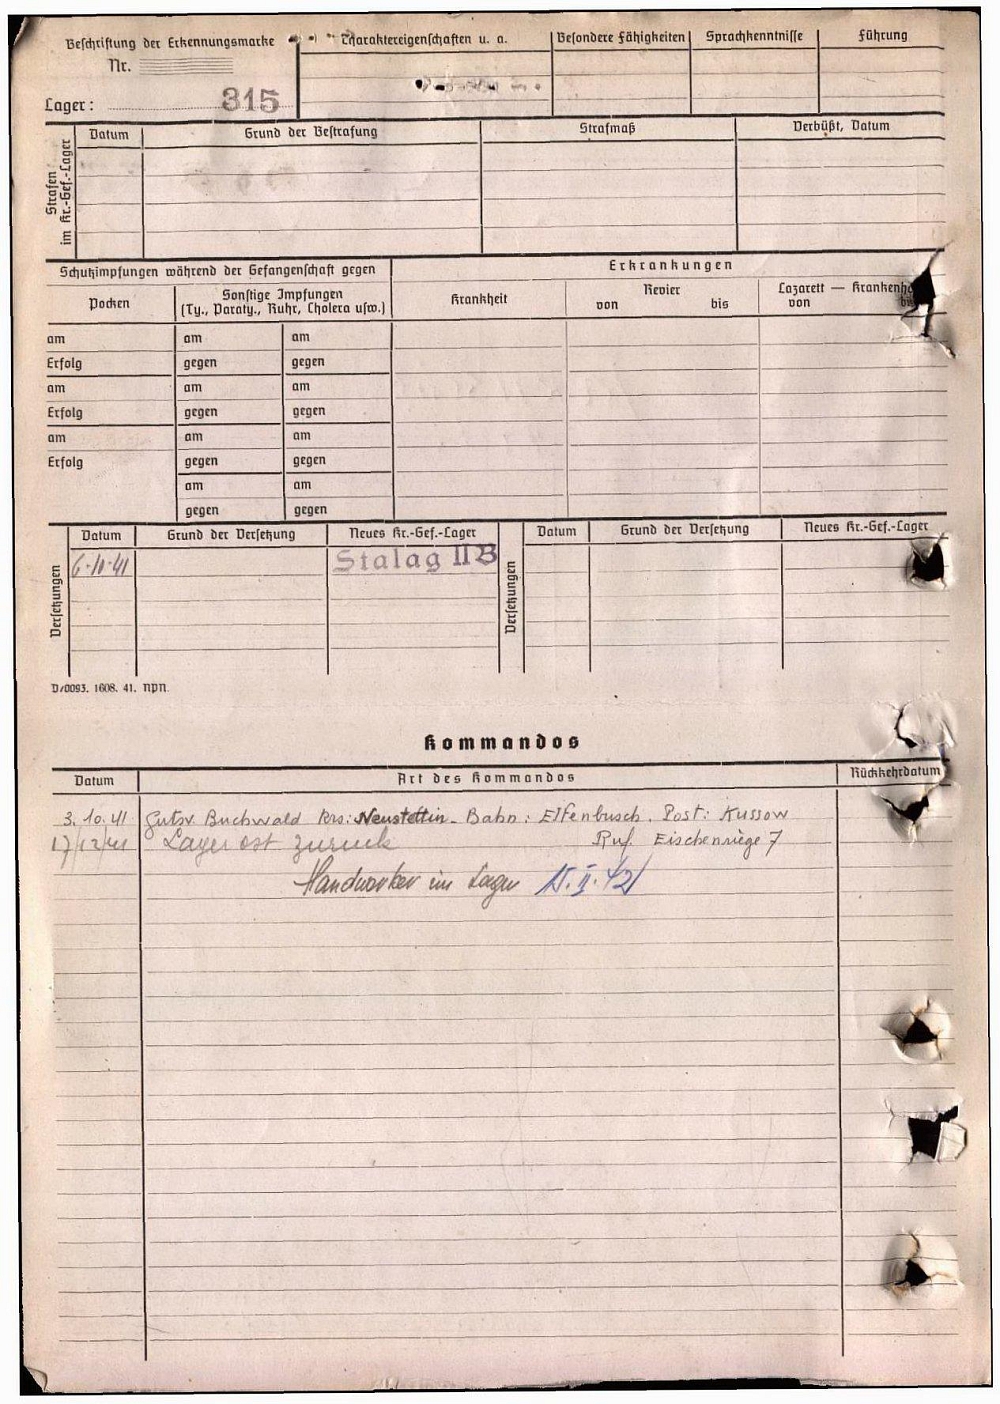 Beschriftung der Erkennungsmarke
Nr.
Lager: 315
Charaktereigenschaften u. a.
Besondere Fähigkeiten
Sprachkenntnisse
Führung
Strafen im Kr.-Gef.-Lager
Datum Grund der Bestrafung Strafmaß Verbüßt, Datum
Schutzimpfungen während der Gefangenschaft gegen
Erkrankungen
Pocken
Sonstige Impfungen
(Ty., Paraty., Ruhr, Cholera usw.)
Krankheit
Revier
von bis
Lazarett — Krankenh
von bis
am am am
Erfolg gegen gegen
am am am
Erfolg gegen gegen
am am am
Erfolg gegen gegen
am am
gegen gegen
Versetzungen
Datum Grund der Versetzung Neues Kr.-Gef.-Lager
6.11.41 Stalag II B
Versetzungen
Datum Grund der Versetzung Neues Kr.-Gef.-Lager
D/0093. 1608. 41. npn.
Kommandos
Datum Art des Kommandos Rückkehrdatum
3.10.41 Gustav Buchwald Krs: Neustettin - Bahn: Elfenbusch. Post: Kussow
17/12/41 Lager ost zurück Ruf Eischenriege 7
Handwerker im Lager 15.II.42